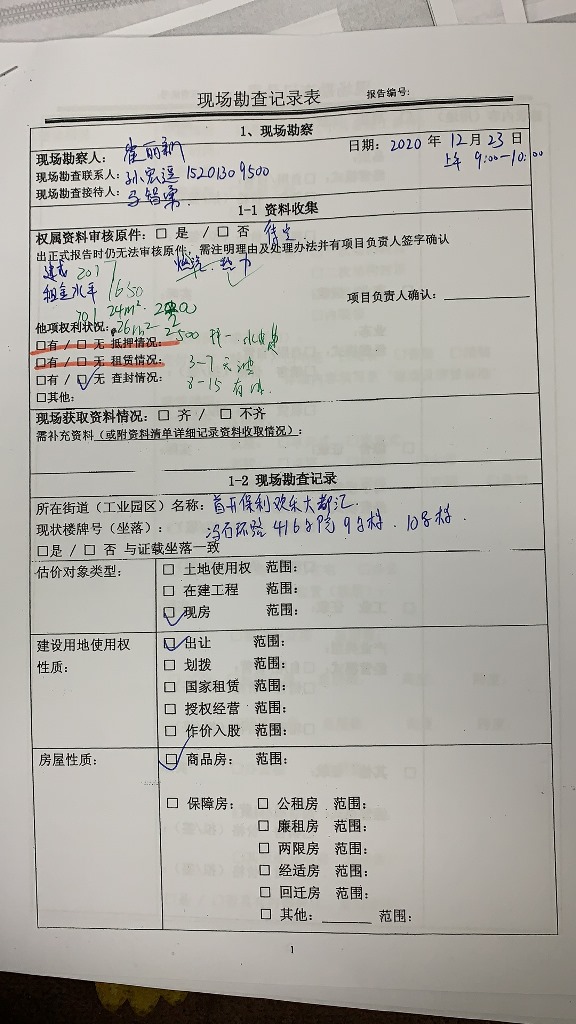 现场勘查记录表 报告编号:
1、现场勘察
现场勘察人: 崔丽
日期: 2020 年 12 月 23 日
现场勘查联系人: 孙宏 15201309500
上午 9:00-10:00
现场勘查接待人:
1-1 资料收集
权属资料审核原件: □ 是 / □ 否 待定
出正式报告时仍无法审核原件, 需注明理由及处理办法并有项目负责人签字确认
建成 2017 燃气、热力
租金水平 1650
项目负责人确认:
701 24m²
他项权利状况: 26m² 2500
□有 / □ 无 抵押情况:
□有 / □ 无 租赁情况: 3-7 无
□有 / □ 无 查封情况: 8-15 有
□其他:
现场获取资料情况: □ 齐 / □ 不齐
需补充资料(或附资料清单详细记录资料收取情况):
1-2 现场勘查记录
所在街道(工业园区)名称: 首开保利欢乐大都汇
现状楼牌号(坐落): 416号院 9号楼、10号楼
□是 / □ 否 与证载坐落一致
估价对象类型: □ 土地使用权 范围:
□ 在建工程 范围:
□ 现房 范围:
建设用地使用权性质: □ 出让 范围:
□ 划拨 范围:
□ 国家租赁 范围:
□ 授权经营 范围:
□ 作价入股 范围:
房屋性质: □ 商品房: 范围:
□ 保障房: □ 公租房 范围:
□ 廉租房 范围:
□ 两限房 范围:
□ 经适房 范围:
□ 回迁房 范围:
□ 其他: ______ 范围:
1